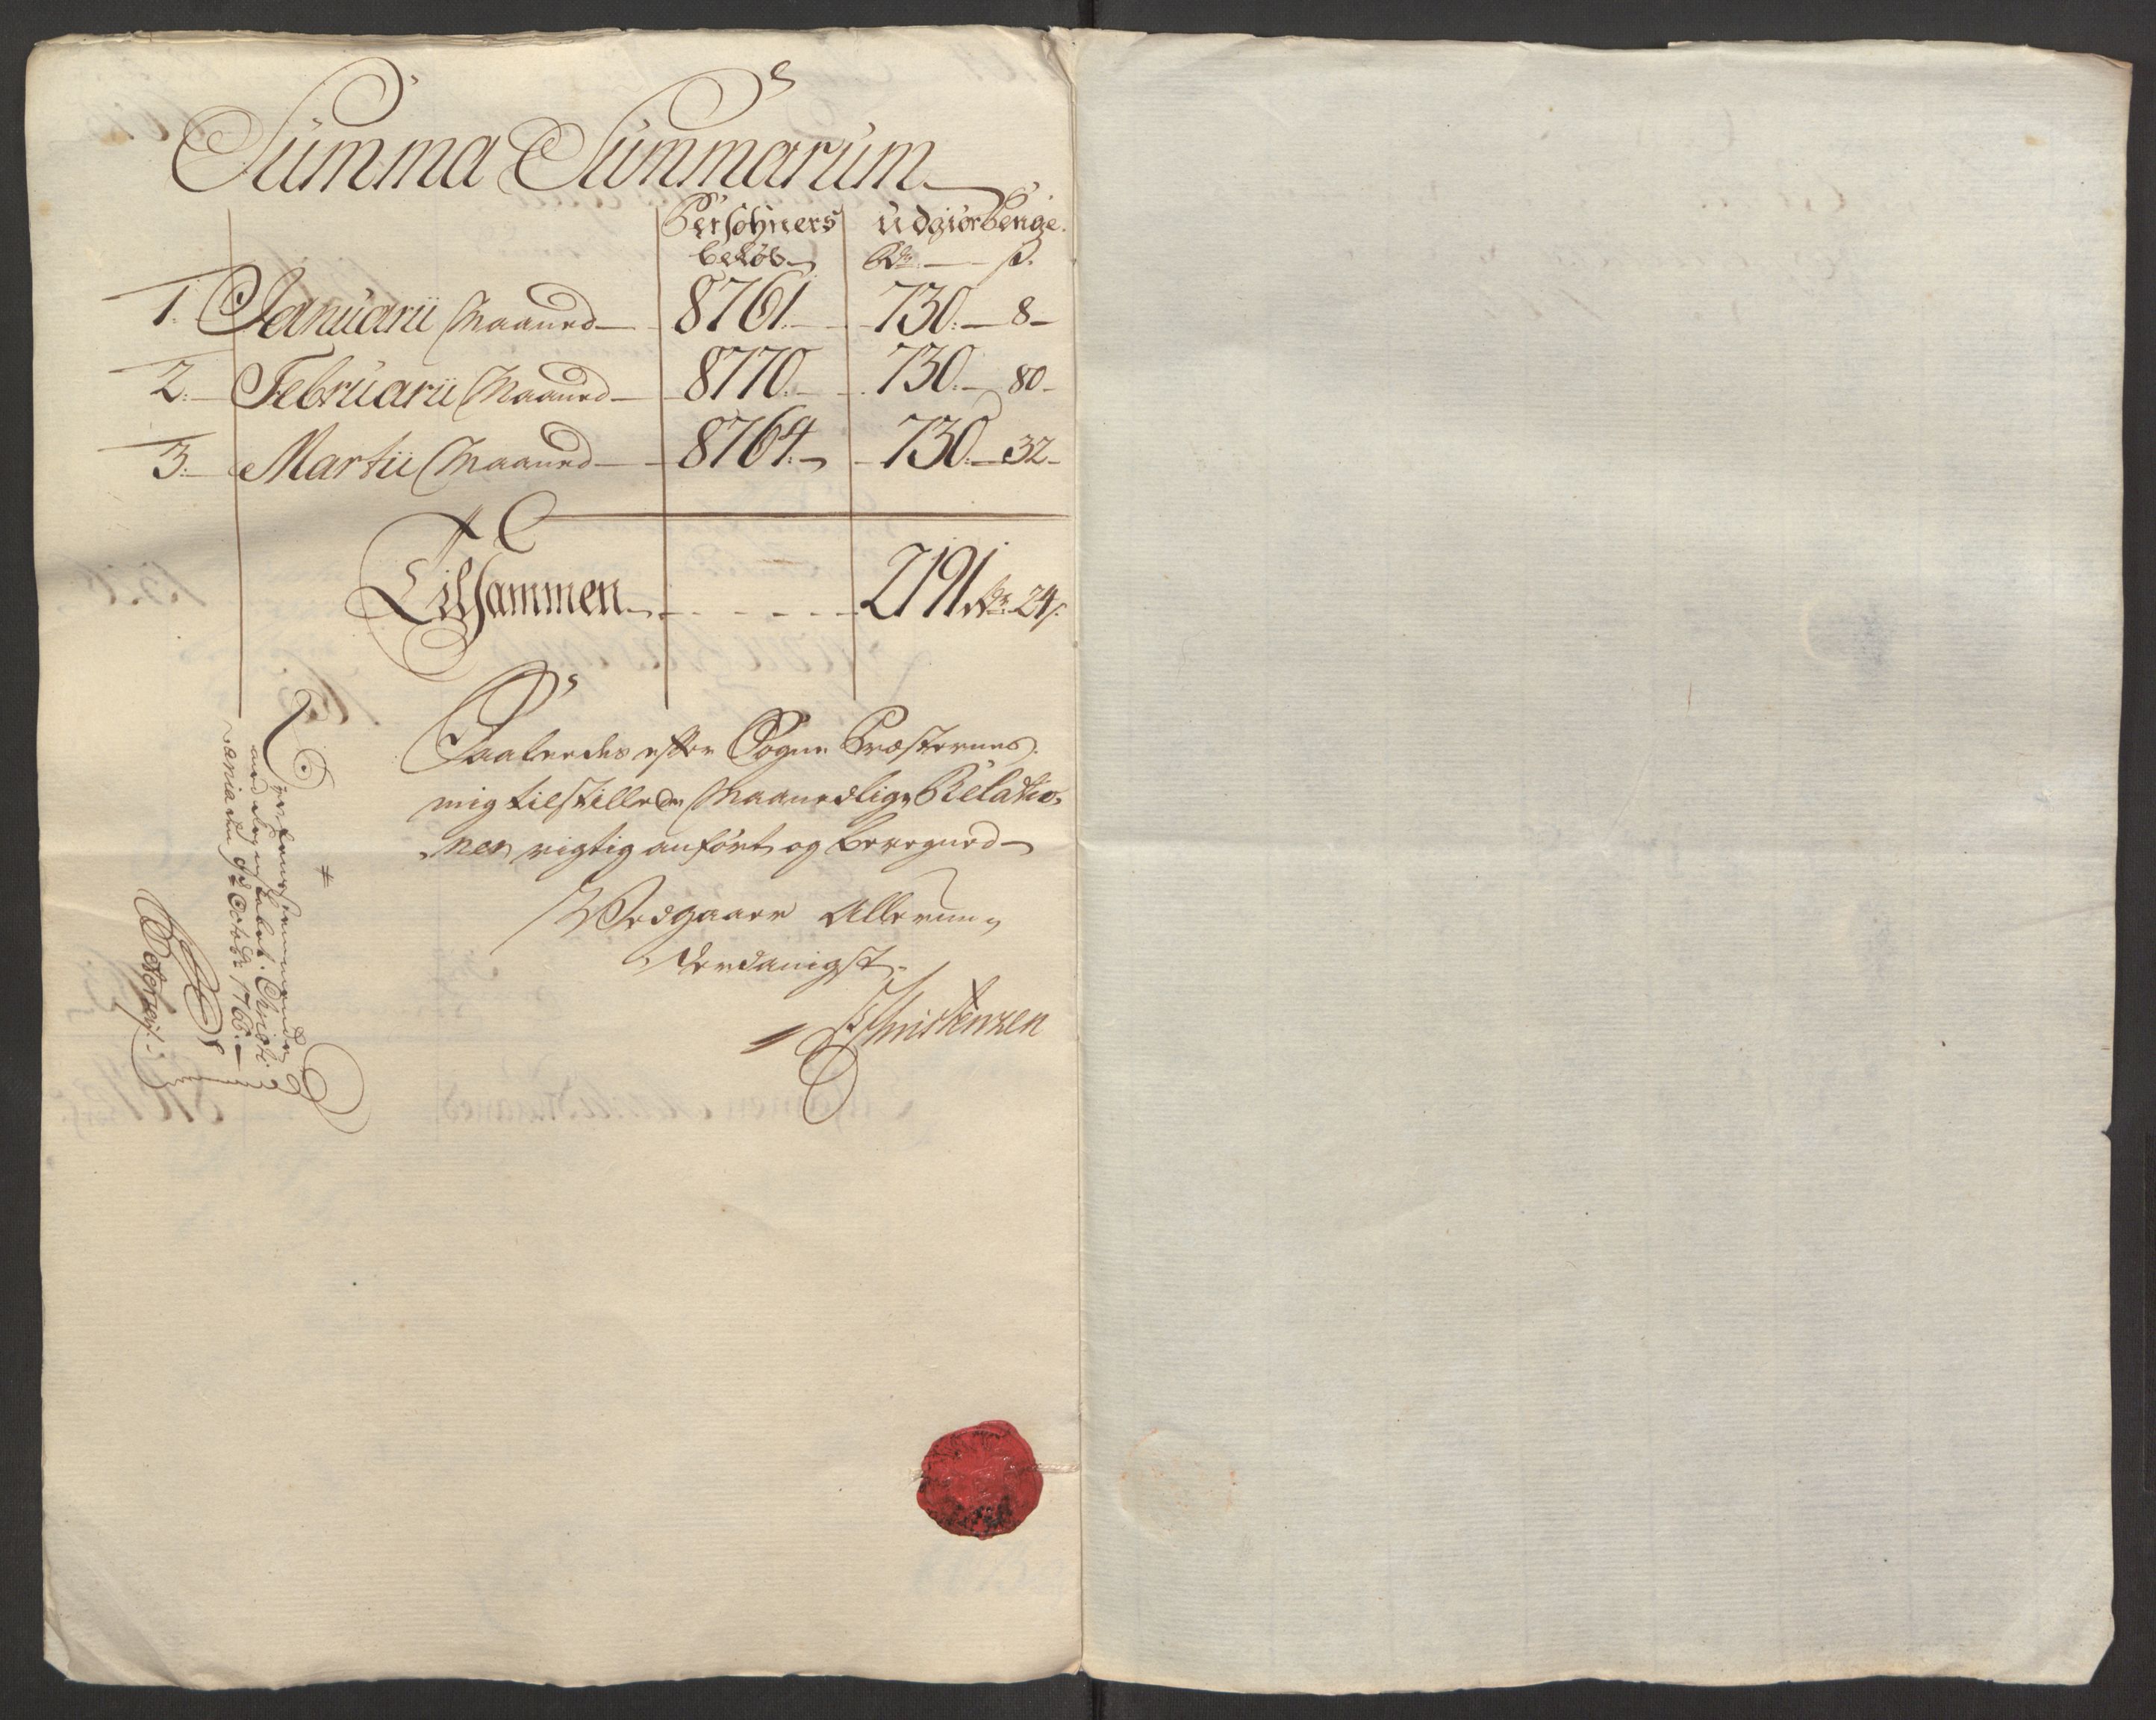 Summa Summarum
Persohners Udgiør Penge.
beløb Rdr. ß.
1. Januarii Maaned 8761. 730. 8
2. Februarii Maaned 8770. 730. 80
3. Martii Maaned 8764. 730. 32
Tilsammen 2191 Rdr. 24 ß.
Saaledes efter Sogne Præsternes
mig tilstillede Maanedlige Relatio-
ner rigtig anført og beregned
Vedgaaer Allerun-
derdanigst
Christensen
Overeensstemmende
med Regnskabet. Christi-
ania den 9de Octobr 1766.